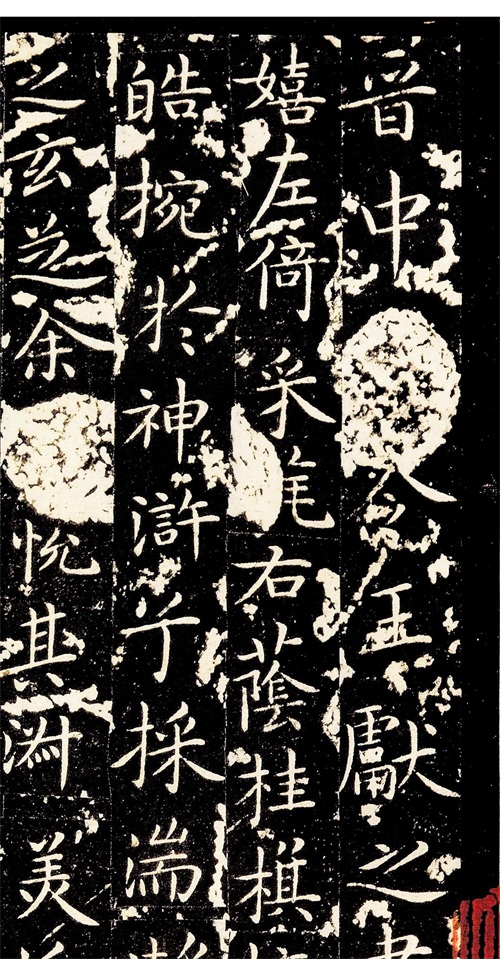 晉中令王獻之
嬉左倚采旄右蔭桂棋
皓捥扵神滸兮採湍
之玄芝余悅其淑美